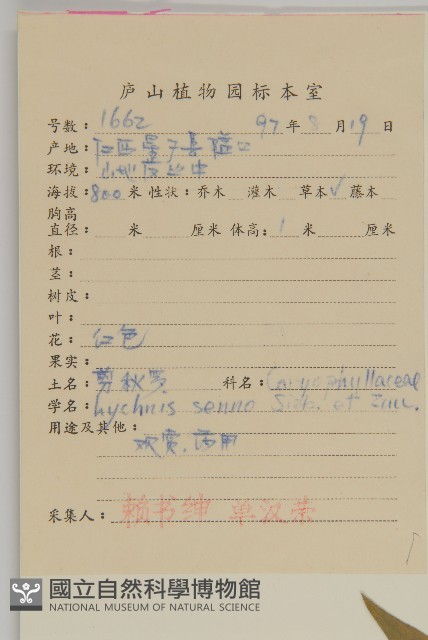 庐山植物园标本室
号数：1662 97年8月19日
产地：江西星子县隘口
环境：山地灌丛中
海拔：800米 性状：乔木 灌木 草本✓ 藤本
胸高
直径： 米 厘米 体高：1米 厘米
根：
茎：
树皮：
叶：
花：红色
果实：
土名：剪秋罗 科名：Caryophyllaceae
学名：Lychnis senno Sieb. et Zucc.
用途及其他：
观赏、药用
采集人：赖书绅 单汉荣
國立自然科學博物館
NATIONAL MUSEUM OF NATURAL SCIENCE